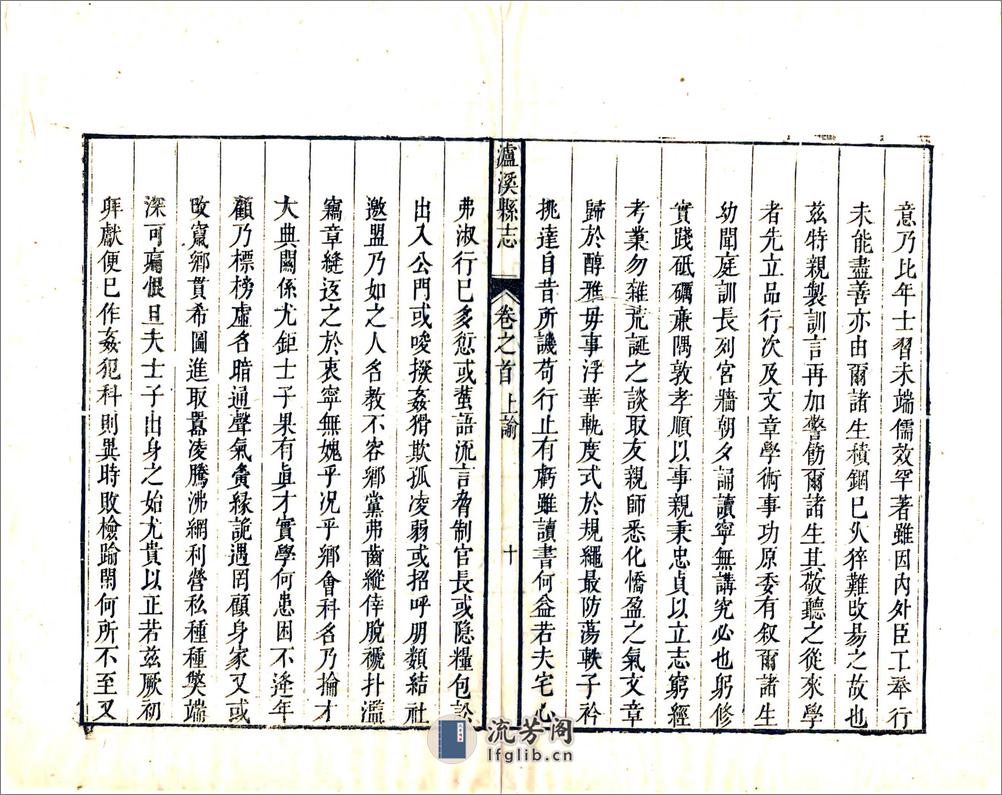 意乃比年士習未端儒效罕著雖因內外臣工奉行
未能盡善亦由爾諸生積錮已久猝難改易之故也
茲特親製訓言再加警飭爾諸生其敬聽之從來學
者先立品行次及文章學術事功原委有叙爾諸生
幼聞庭訓長列宮牆朝夕誦讀寧無講究必也躬修
實踐砥礪亷隅敦孝順以事親秉忠貞以立志窮經
考業勿雜荒誕之談取友親師悉化憍盈之氣文章
歸於醇雅毋事浮華軌度式於規繩最防蕩軼子衿
挑達自昔所譏苟行止有虧雖讀書何益若夫宅心
瀘溪縣志 卷之首 上諭 十
弗淑行已多愆或蜚語流言脅制官長或隱糧包訟
出入公門或唆撥姦猾欺孤凌弱或招呼朋類結社
邀盟乃如之人名教不容鄉黨弗齒縱倖脫褫扑濫
竊章縫返之於衷寧無媿乎况乎鄉會科名乃掄才
大典關係尤鉅士子果有眞才實學何患困不逢年
顧乃標榜虛名暗通聲氣夤緣詭遇罔顧身家又或
改竄鄉貫希圖進取囂凌騰沸網利營私種種獘端
深可痛恨且夫士子出身之始尤貴以正若茲厥初
拜獻便已作姦犯科則異時敗檢踰閑何所不至又
流芳阁
lfglib.cn